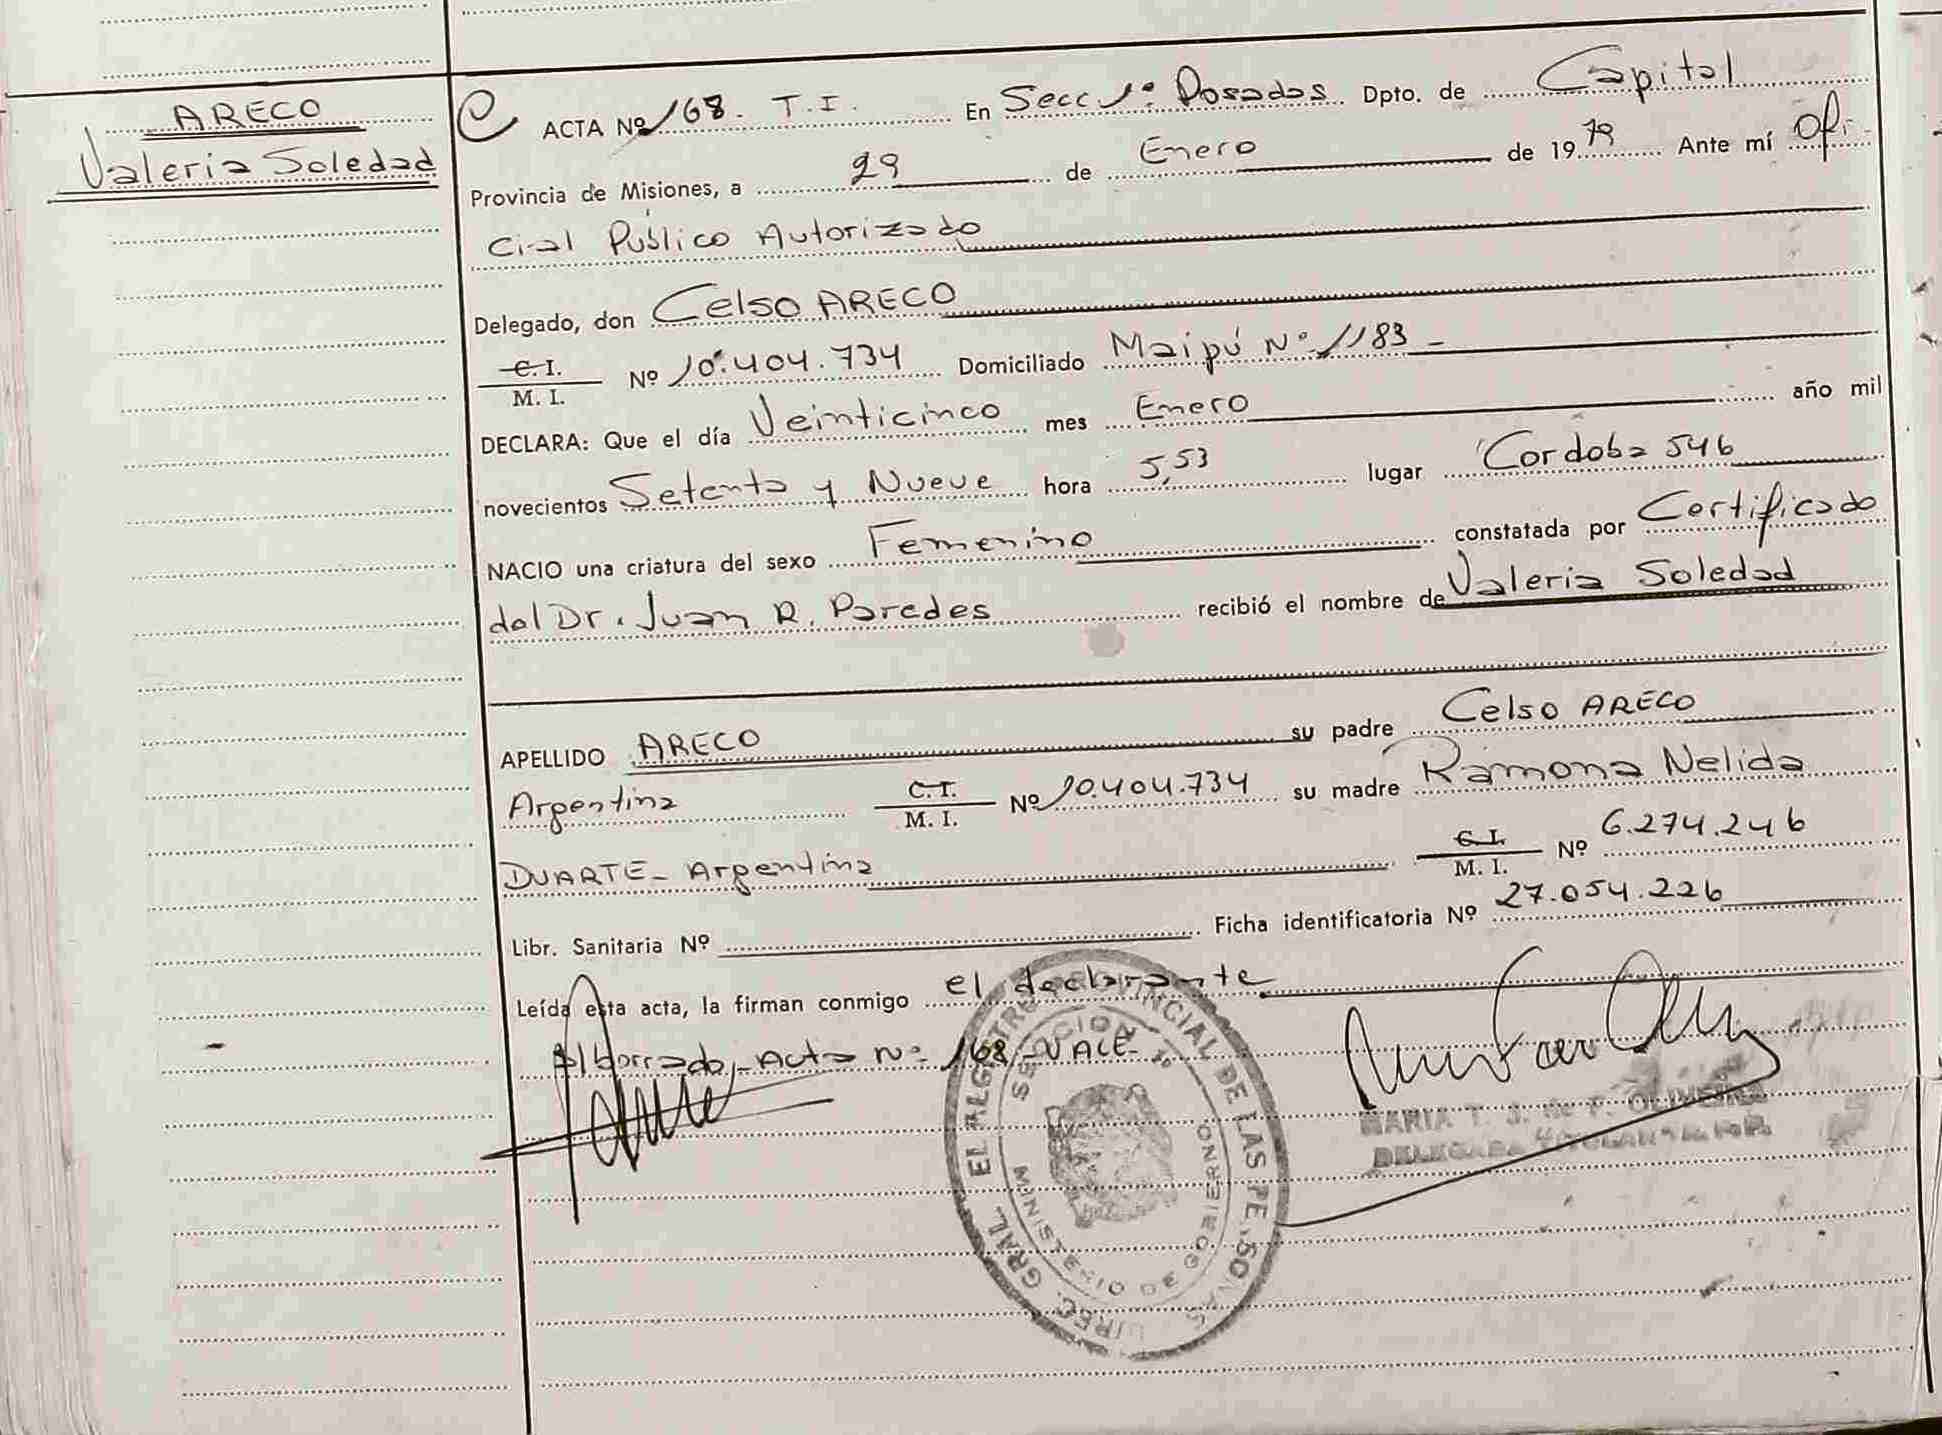 ARECO
Valeria Soledad
ACTA Nº 168. T.I. En Secc 1º. Posadas Dpto. de Capital
Provincia de Misiones, a 29 de Enero de 1979 Ante mí Ofi-
cial Público Autorizado
Delegado, don Celso ARECO
C.I. / M. I. Nº 10.404.734 Domiciliado Maipú Nº 1183 -
DECLARA: Que el día Veinticinco mes Enero año mil
novecientos Setenta y Nueve hora 5,53 lugar Cordoba 546
NACIO una criatura del sexo Femenino constatada por Certificado
del Dr. Juan R. Paredes recibió el nombre de Valeria Soledad
APELLIDO ARECO su padre Celso ARECO
Argentina C.I. / M. I. Nº 10.404.734 su madre Ramona Nelida
DUARTE - Argentina C.I. / M. I. Nº 6.274.246
Libr. Sanitaria Nº Ficha identificatoria Nº 27.054.226
Leída esta acta, la firman conmigo el declarante
El borrado - Acta Nº 168 - VALE -
MARIA T. J. de F. OLIVEIRA
DELEGADA TITULAR
SECCION 1º
MINISTERIO DE GOBIERNO